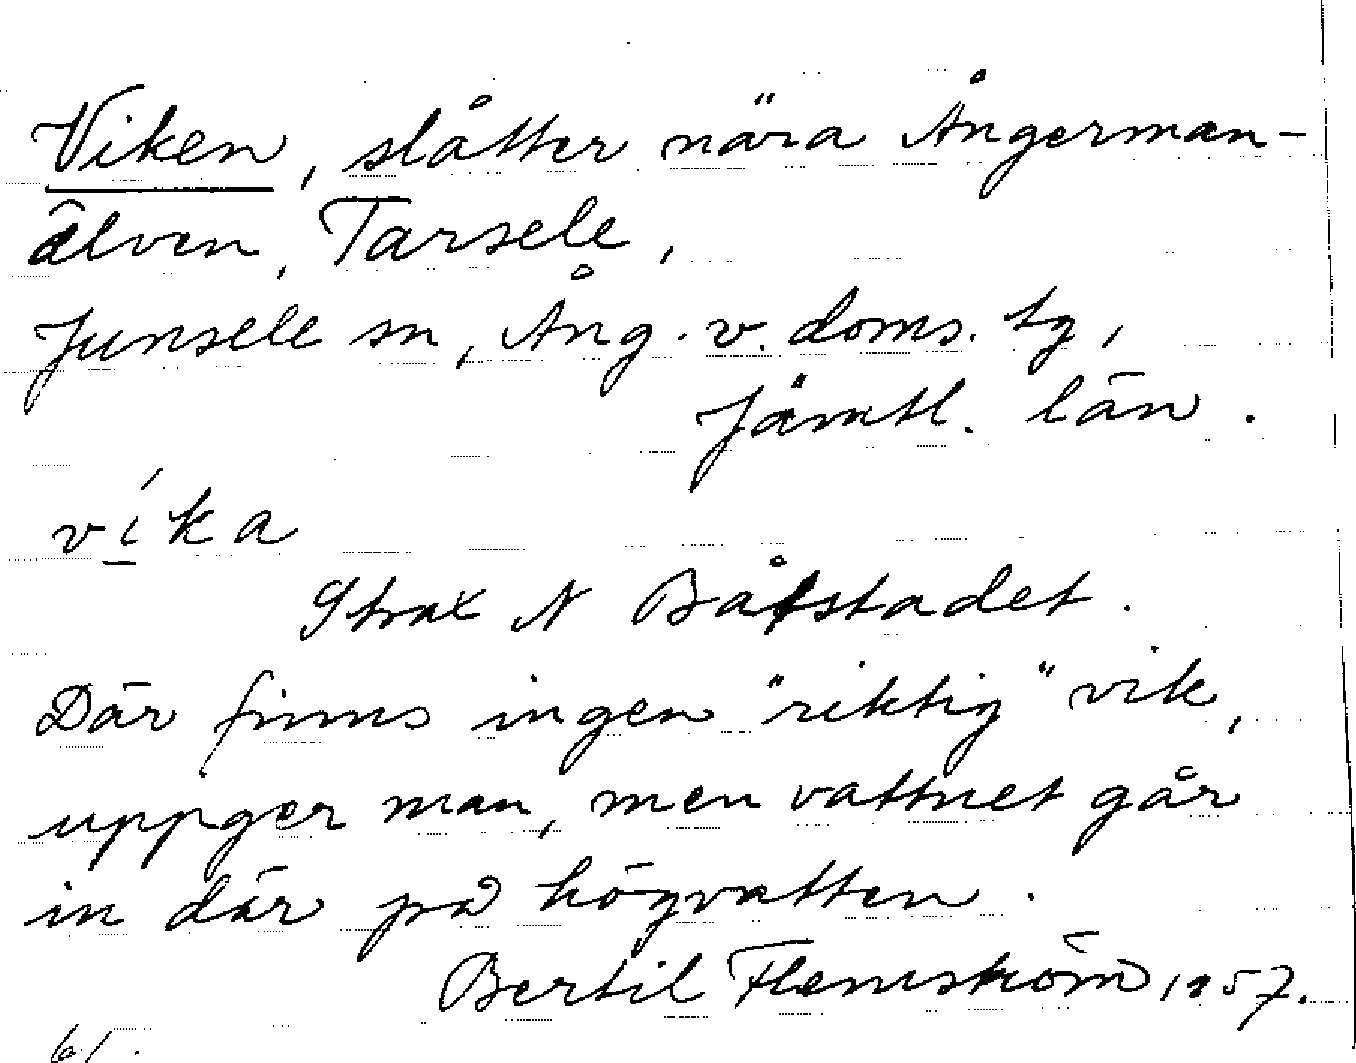 Viken, slåtter nära Ångerman-
älven, Tarsele,
Junsele sn, Ång. v. doms. tg,
Jämtl. län.
víka
Strax N Båtstadet.
Där finns ingen "riktig" vik,
uppger man, men vattnet går
in där på högvatten.
Bertil Flemström 1957.
61.